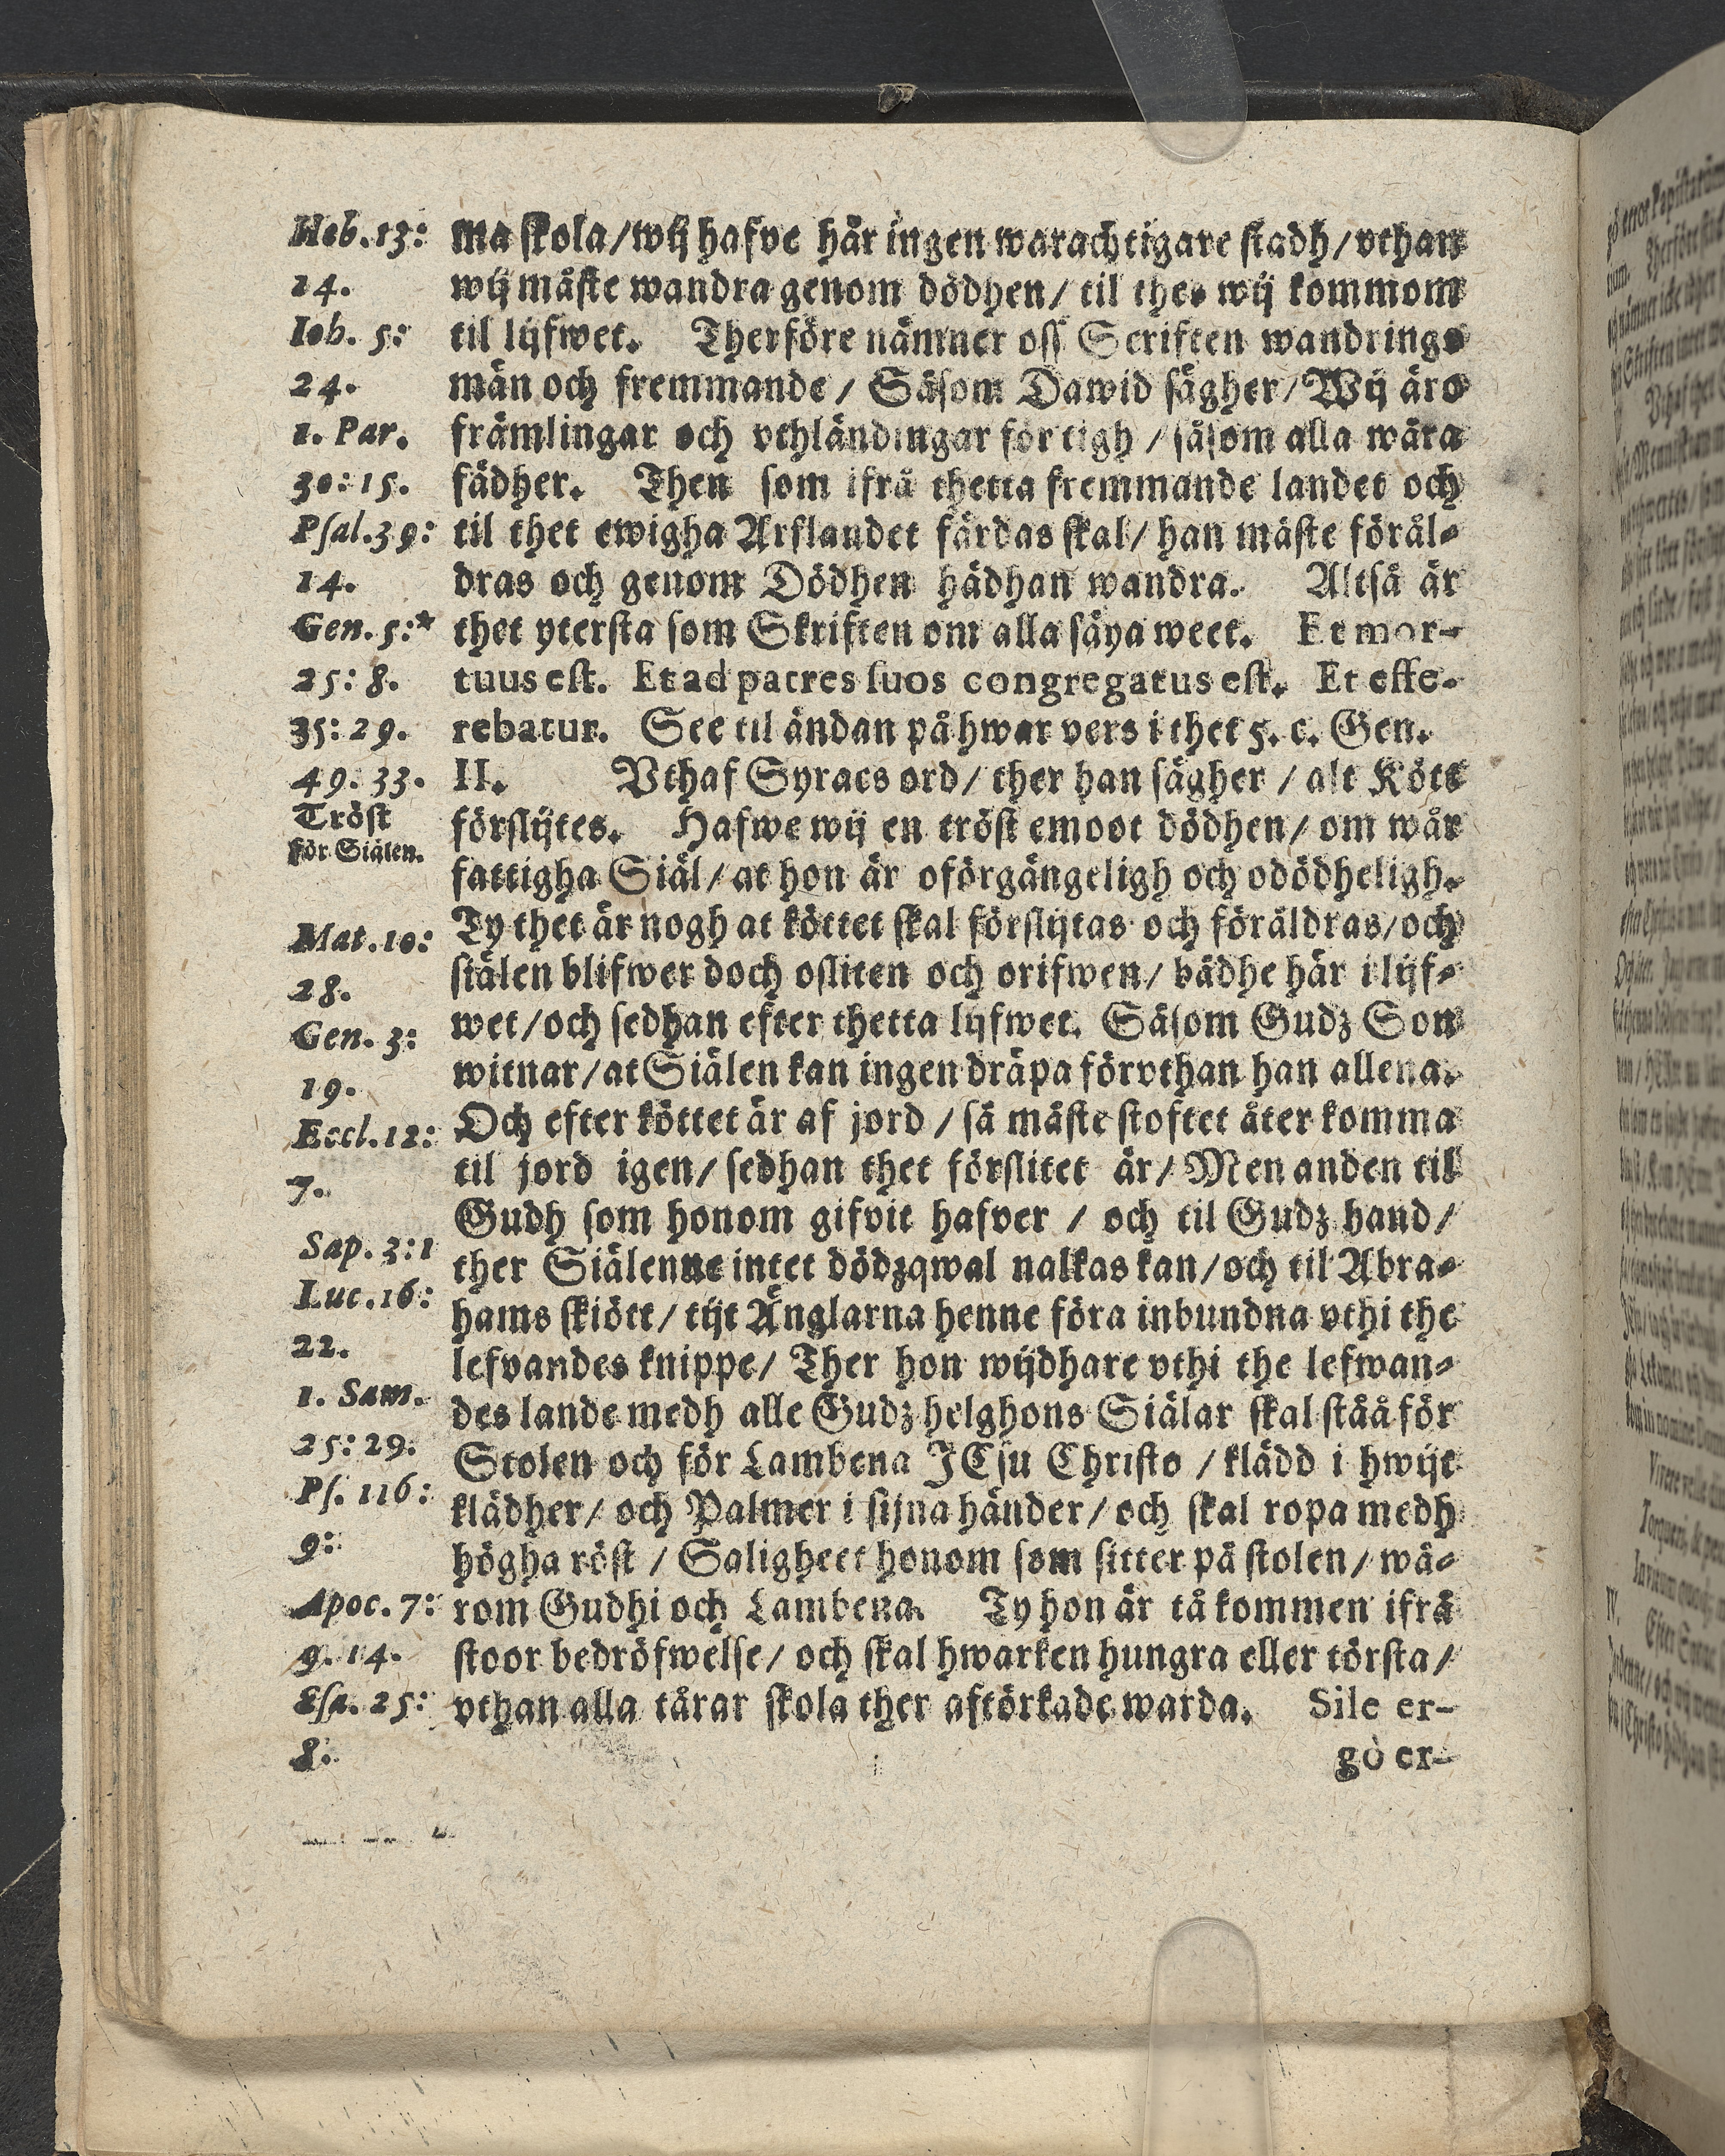 Heb. 13:
14.
Iob. 5:
24.
1. Par.
30: 15.
Pſal. 39:
14.
Gen. 5:*
25: 8.
35: 29.
49. 33.
Tröſt
för Siälen.
Mat. 10:
28.
Gen. 3:
19.
Eccl. 12:
7.
Sap. 3: 1
Luc. 16:
22.
1. Sam.
25: 29.
Pſ. 116:
9:
Apoc. 7:
9. 14.
Eſa. 25:
8.
ma ſkola/ wij hafve här ingen warachtigare ſtadh/ vthan
wij måſte wandra genom dödhen/ til thes wij kommom
til lijfwet. Therföre nämner oſſ Scriften wandrings
män och fremmande / Såſom Dawid ſägher/ Wij äro
främlingar och vthländingar för tigh / ſåſom alla wåra
fädher. Then ſom ifrå thetta fremmande landet och
til thet ewigha Arflandet färdas ſkal/ han måſte föräl⸗
dras och genom Dödhen hädhan wandra. Altſå är
thet yterſta ſom Skriften om alla ſäya weet. Et mor-
tuus eſt. Et ad patres ſuos congregatus eſt. Et effe-
rebatur. See til ändan på hwar vers i thet 5. c. Gen.
II. Vthaf Syracs ord/ ther han ſägher / alt Kött
förſlijtes. Hafwe wij en tröſt emoot dödhen/ om wår
fattigha Siäl/ at hon är oförgängeligh och odödheligh.
Ty thet är nogh at köttet ſkal förſlijtas och föräldras/ och
ſiälen blifwer doch oſliten och orifwen/ bådhe här i lijf⸗
wet/ och ſedhan efter thetta lijfwet. Såſom Gudz Son
witnar/ at Siälen kan ingen dräpa förvthan han allena.
Och efter köttet är af jord / ſå måſte ſtoftet åter komma
til jord igen/ ſedhan thet förſlitet är/ Men anden til
Gudh ſom honom gifvit hafver / och til Gudz hand/
ther Siälenne intet dödzqwal nalkas kan/ och til Abra⸗
hams ſkiött/ tijt Änglarna henne föra inbundna vthi the
lefvandes knippe/ Ther hon wijdhare vthi the lefwan⸗
des lande medh alle Gudz helghons Siälar ſkal ſtåå för
Stolen och för Lambena JEſu Chriſto / klädd i hwijt
klädher/ och Palmer i ſijna händer/ och ſkal ropa medh
högha röſt / Saligheet honom ſom ſitter på ſtolen/ wå⸗
rom Gudhi och Lambena. Ty hon är tå kommen ifrå
ſtoor bedröfwelſe/ och ſkal hwarken hungra eller törſta/
vthan alla tårar ſkola ther aftörkade warda. Sile er-
go er-